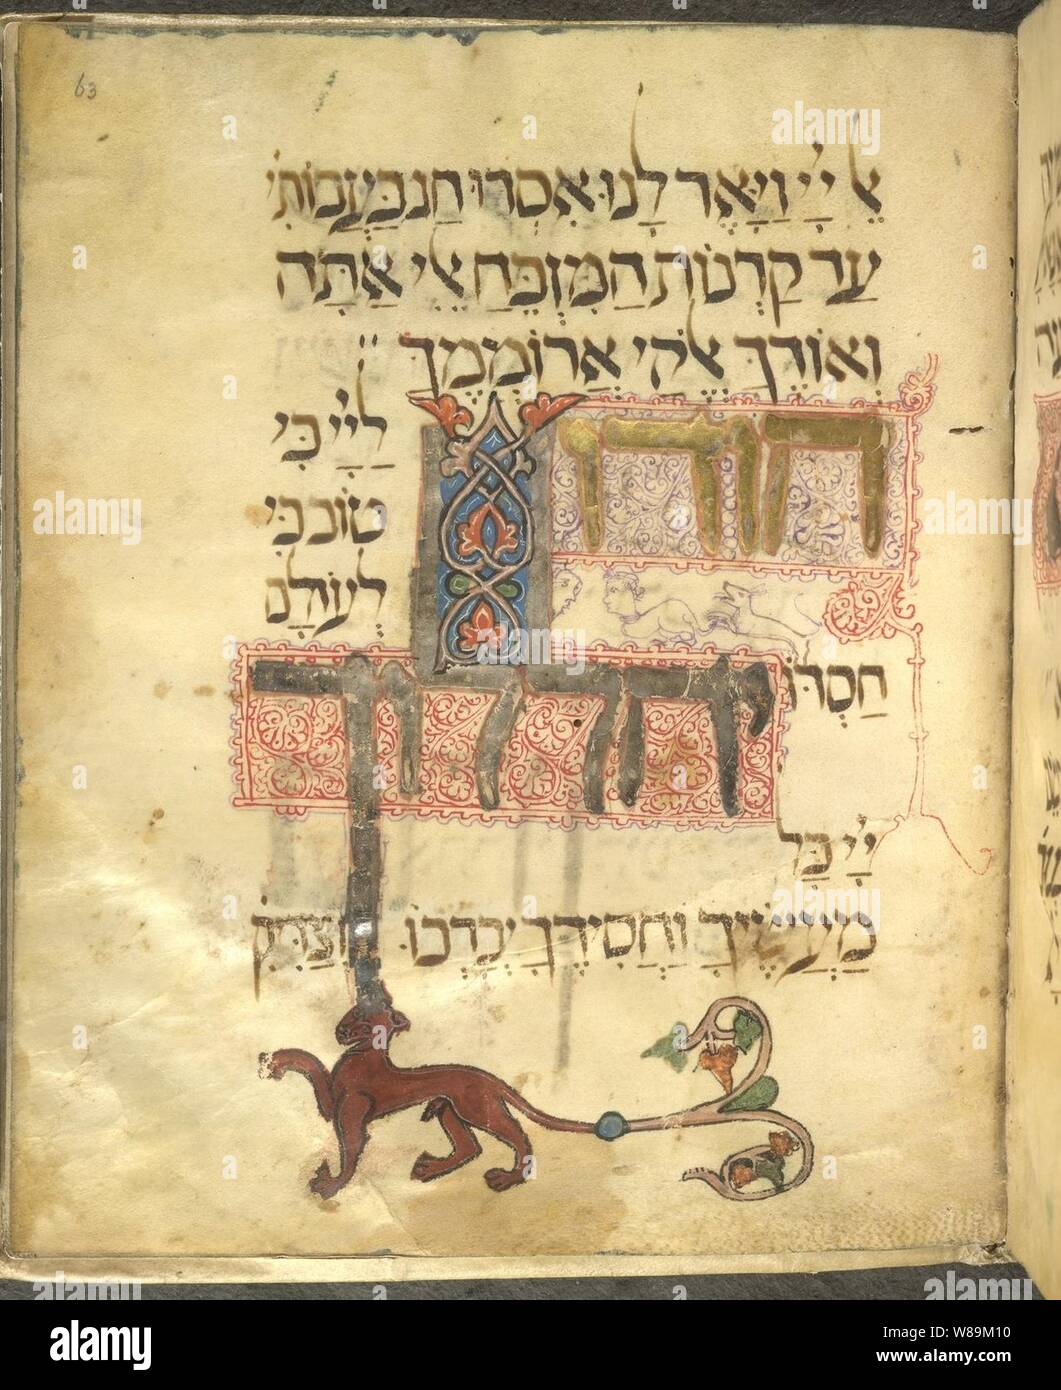 63
אֵל יְיָ וַיָּאֶר לָנוּ אִסְרוּ חַג בַּעֲבוֹתִי
עַד קַרְנוֹת הַמִּזְבֵּחַ אֵלִי אַתָּה
וְאוֹדֶךָּ אֱלֹקַי אֲרוֹמְמֶךָּ
הודו לַייָ כִּי
טוֹב כִּי
לְעוֹלָם
חַסְדּוֹ
יהללוך
יְיָ כָּל
מַעֲשֶׂיךָ וַחֲסִידֶךָ יְבָרְכוּ וְצַדִּיקִ
alamy
Image ID: W89M10
www.alamy.com